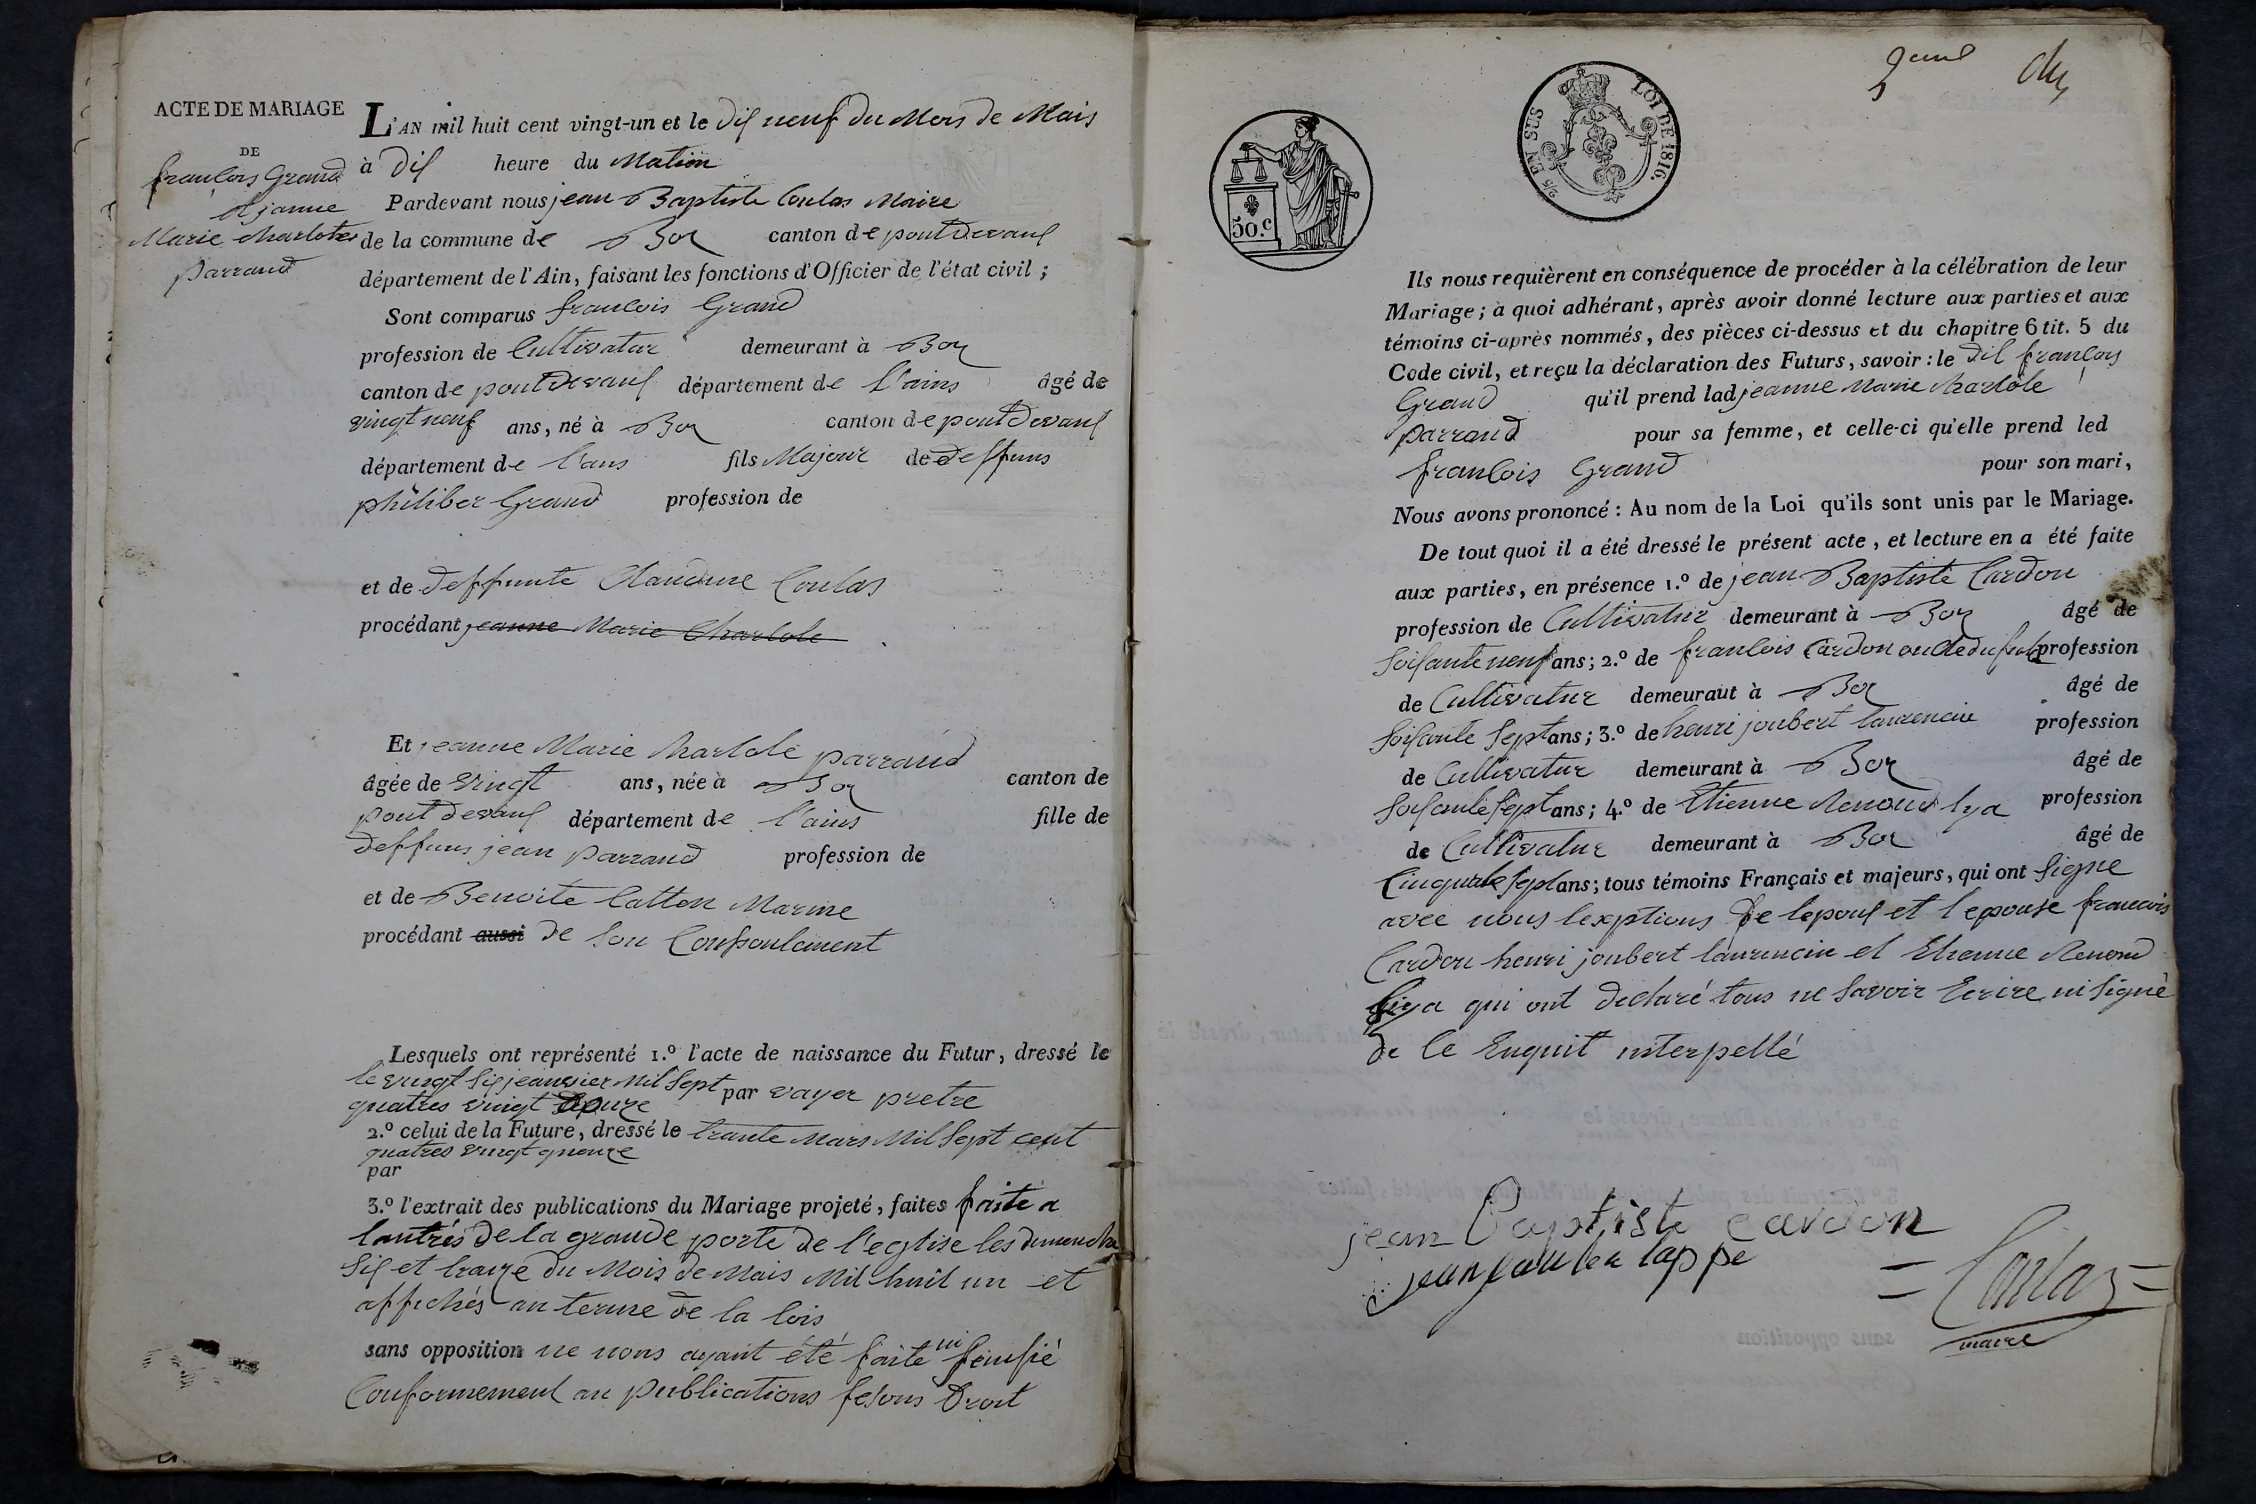 ACTE DE MARIAGE
DE
francois Grand
et janne
Marie charlotes
parraud
L'AN mil huit cent vingt-un et le dix neuf du Mois de Mais
à dix heure du Matin
Pardevant nous jean Baptiste Coulas Maire
de la commune de Boz canton de pontdevaux
département de l'Ain, faisant les fonctions d'Officier de l'état civil ;
Sont comparus francois Grand
profession de Cultivatur demeurant à Boz
canton de pontdevaux département de l'ains âgé de
vingt neuf ans, né à Boz canton de pontdevaux
département de l'ans fils Majour de deffuns
philiber Grand profession de
et de deffunte Claudine Coulas
procédant jeanne Marie Charlole
Et jeanne Marie charlole parraud
âgée de vingt ans, née à Boz canton de
pont devaux département de l'ains fille de
deffuns jean parraud profession de
et de Benoite Catton Marine
procédant aussi de son
Lesquels ont représenté 1.º l'acte de naissance du Futur, dressé le
le vingt six jeanvier Mil Sept
quatres vingt douze par vayer pretre
2.º celui de la Future, dressé le trante Mars Mil Sept cent
quatres vingt
par
3.º l'extrait des publications du Mariage projeté, faites faite a
lantrés de la grande porte de l'eglise les dimenche
Six et traize du Mois de Mais Mil huit un et
affichés au terme de la lois
sans opposition ne nous ayant été faite ni
Conformement au publications fesons droit
2/5 EN SUS
LOI DE 1816.
50.c
Ils nous requièrent en conséquence de procéder à la célébration de leur
Mariage ; à quoi adhérant, après avoir donné lecture aux parties et aux
témoins ci-après nommés, des pièces ci-dessus et du chapitre 6 tit. 5 du
Code civil, et reçu la déclaration des Futurs, savoir : le dit françois
Grand qu'il prend lad jeanne Marie charlole
parraud pour sa femme, et celle-ci qu'elle prend led
francois Grand pour son mari,
Nous avons prononcé : Au nom de la Loi qu'ils sont unis par le Mariage.
De tout quoi il a été dressé le présent acte, et lecture en a été faite
aux parties, en présence 1.º de jean Baptiste Cardon
profession de Cultivatur demeurant à Boz âgé de
Soixante neuf ans ; 2.º de francois Cardon profession
de Cultivatur demeurant à Boz âgé de
Soixante Sept ans ; 3.º de henri joubert laurencin profession
de Cultivatur demeurant à Boz âgé de
Soixante Sept ans ; 4.º de Etienne Renoud lya profession
de Cultivatur demeurant à Boz âgé de
Cinquate Sept ans ; tous témoins Français et majeurs, qui ont Signe
avec nous lexptions de lepoux et lepouse francois
Cardon henri joubert laurencin et Etienne Renoud
liya qui ont declaré tous ne Savoir Ecrire ni Signé
de Ce Enquit interpellé
jean Baptiste cardon
Coulas
maire